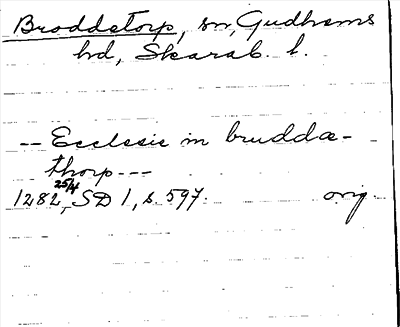 Broddetorp, sn, Gudhems
hd, Skarab. l.
-- Ecclesie in bruddæ-
thorp ---
1282 25/4, SD 1, s. 597. orig